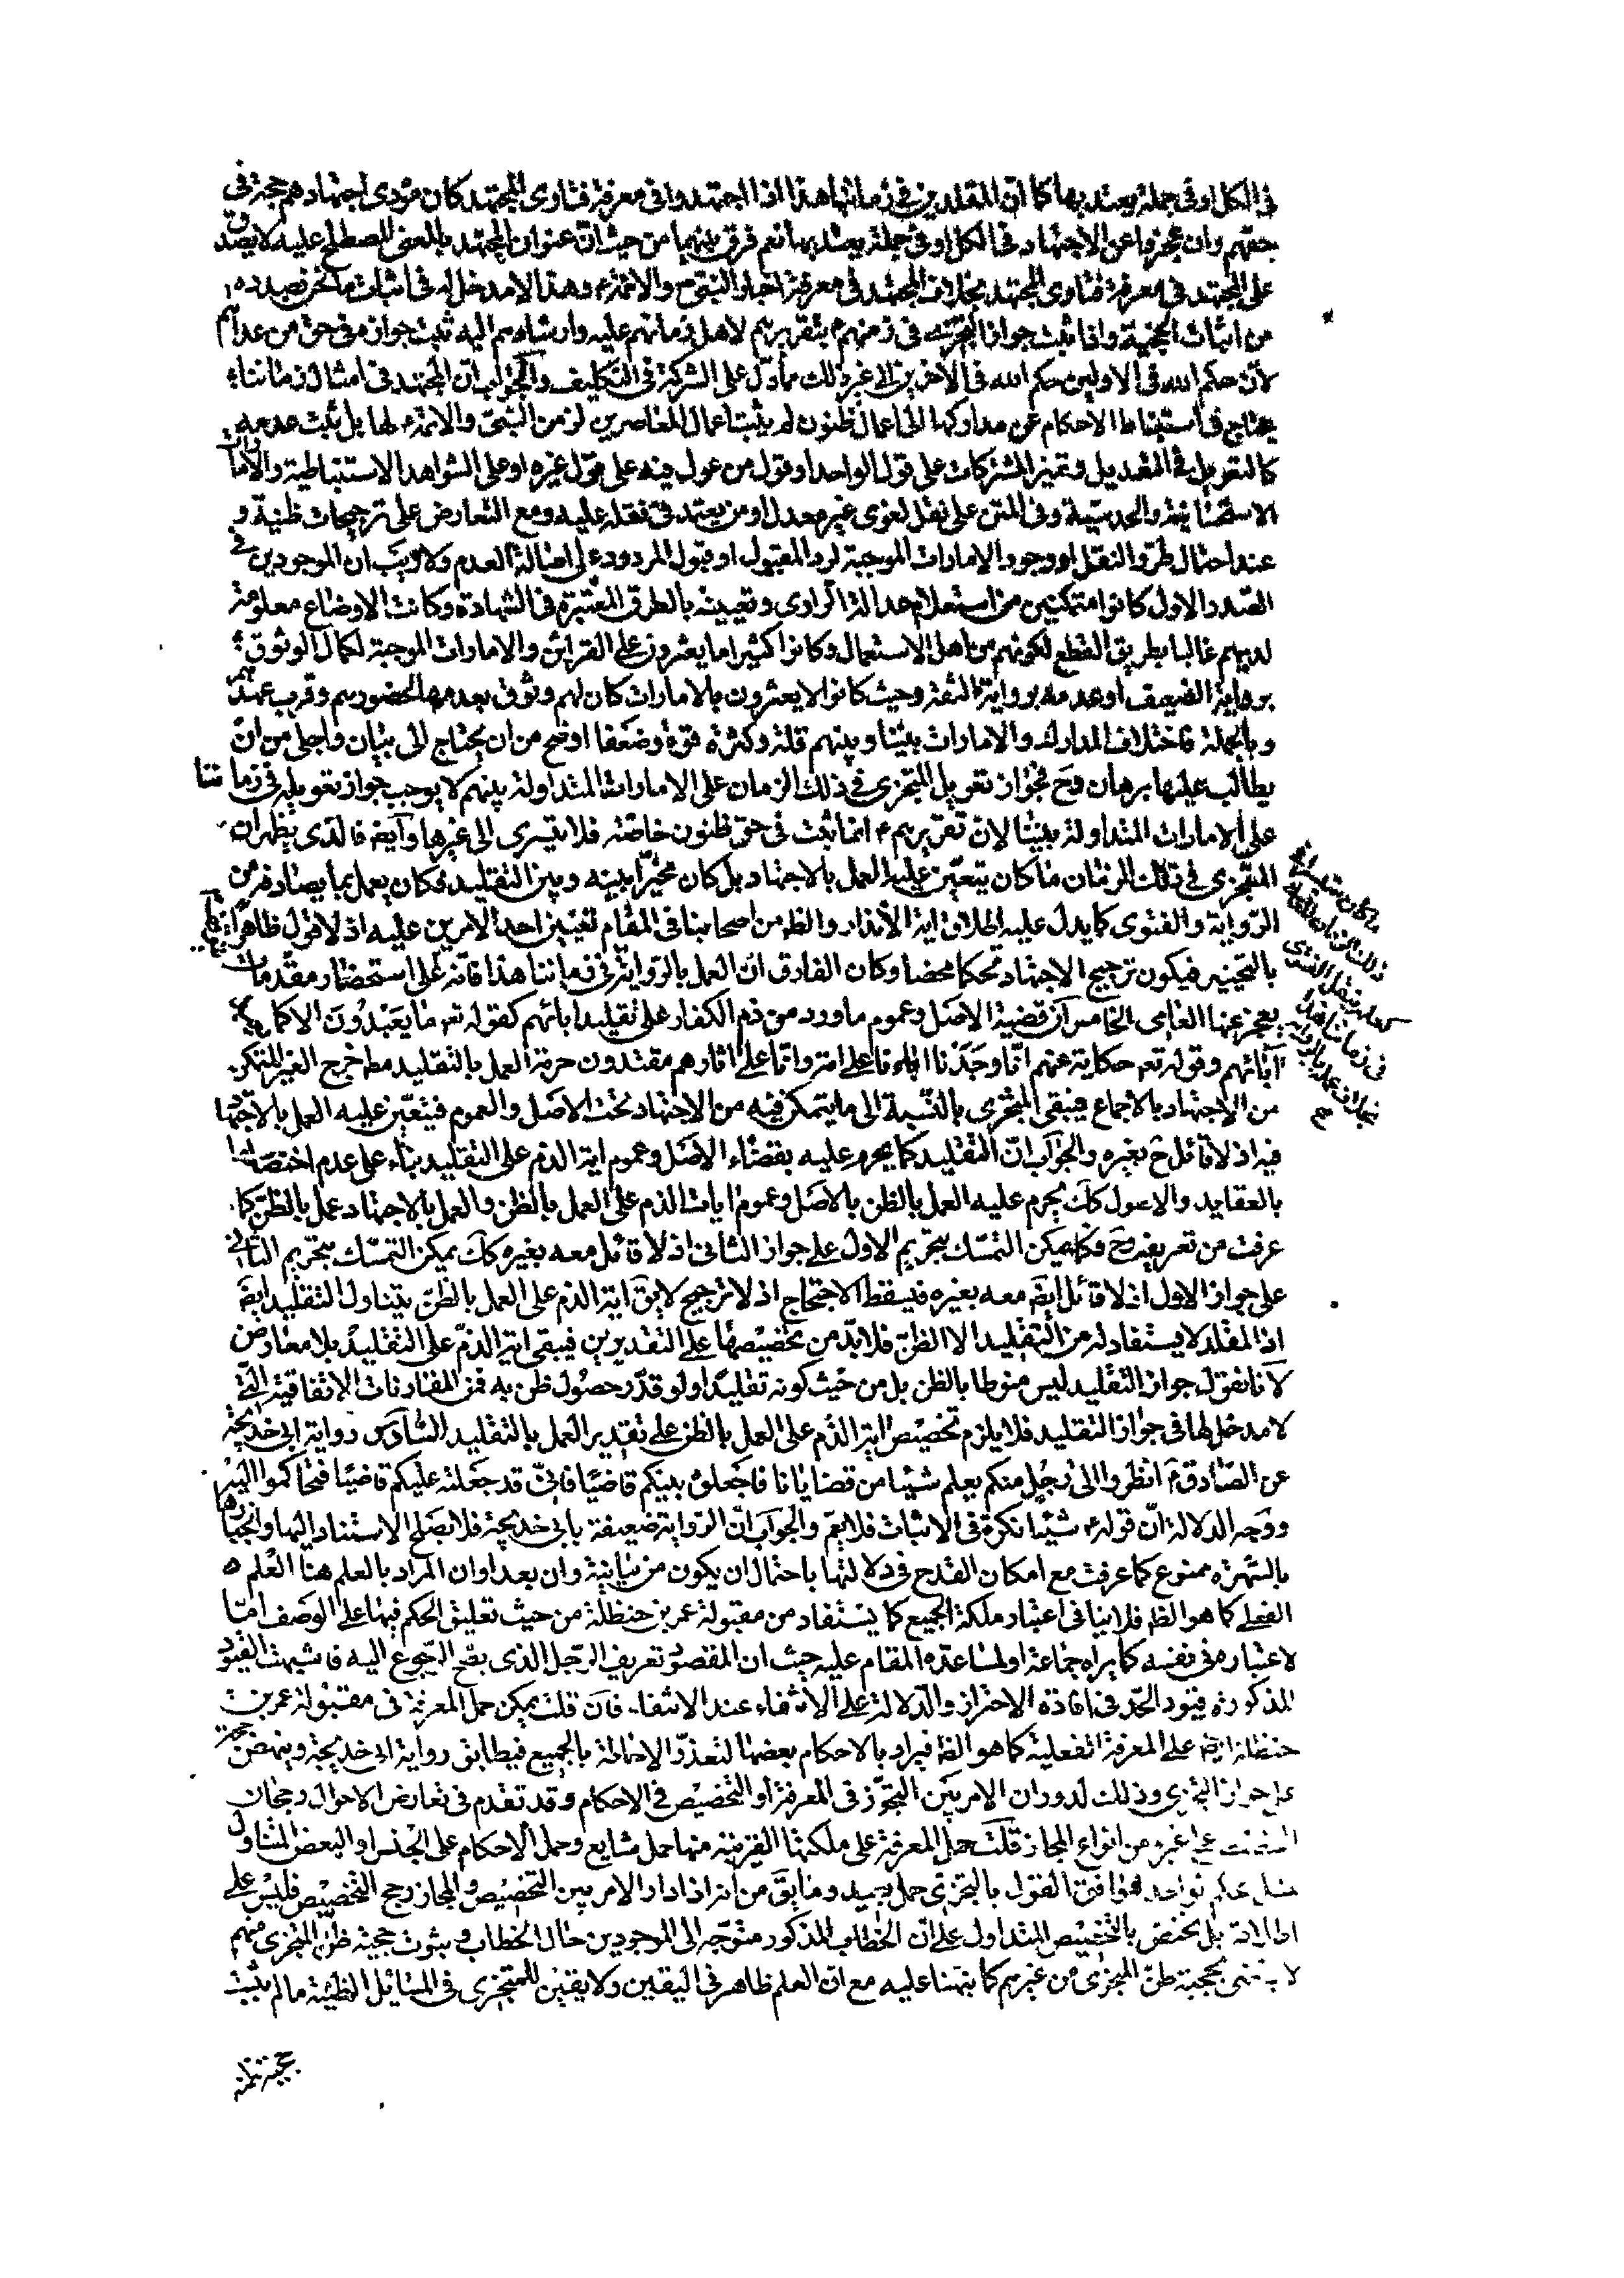 في الكل او في جملة يعتد بها كما ان المقلدين في زماننا هذا اذا اجتهدوا في معرفة فتاوى المجتهد كان مؤدى اجتهادهم حجة في
حقهم وان عجزوا عن الاجتهاد في الكل او في جملة يعتد بها نعم فرق بينهما من حيث ان عنوان المجتهد بالمعنى المصطلح عليه لا يصدق
على المجتهد في معرفة فتاوى المجتهد بخلاف المجتهد في معرفة اخبار النبي ص والائمة ع وهذا لا مدخل له في اثبات ما نحن بصدده
من اثبات الحجية واذا ثبت جواز التجزي في زمنهم ع بتقريرهم لاهل زمانهم عليه وارشادهم اليه ثبت جوازه في حق من عداهم
لان حكم الله في الاولين حكم الله في الاخرين الى غير ذلك مما دل على الشركة في التكليف والجواب ان المجتهد في امثال زماننا
يحتاج في استنباط الاحكام عن مداركها الى اعمال ظنون لم يثبت اعمال المعاصرين لزمن النبي والائمة لها بل ثبت عدمه
كالتعويل في التعديل وتميز المشتركات على قول الواحد او قول من عول فيه على قول غيره او على الشواهد الاستنباطية والامارات
الاستحسانية والحدسية وفي المتن على نقل لغوي غير معدل او من يعتمد في نقله عليه ومع التعارض على ترجيحات ظنية و
عند احتمال طرو النقل او وجود الامارات الموجبة لرد المقبول او قبول المردود على اصالة العدم ولا ريب ان الموجودين في
الصدر الاول كانوا متمكنين من استعلام عدالة الراوي وتعيينه بالطرق المعتبرة في الشهادة وكانت الاوضاع معلومة
لديهم غالبا بطريق القطع لكونهم من اهل الاستعمال وكانوا كثيرا ما يعثرون على القرائن والامارات الموجبة لكمال الوثوق
برواية الضعيف او عدمه برواية الثقة وحيث كانوا لا يعثرون بالامارات كان لهم وثوق بعدمها لحضورهم وقرب عهدهم
وبالجملة فاختلاف المدارك والامارات بيننا وبينهم قلة وكثرة قوة وضعفا اوضح من ان يحتاج الى بيان واجلى من ان
يطالب عليها برهان وح فجواز تعويل المتجزي في ذلك الزمان على الامارات المتداولة بينهم لا يوجب جواز تعويله في زماننا
على الامارات المتداولة بيننا لان تقريرهم ع انما ثبت في حق ظنون خاصة فلا يتسرى الى غيرها وايضا فالذي يظهر ان
المتجزي في ذلك الزمان ما كان يتعين عليه العمل بالاجتهاد بل كان مخيرا بينه وبين التقليد فكان يعمل بما يصادفه من
الرواية والفتوى كما يدل عليه اطلاق اية الانذار والظ من اصحابنا في المقام تعيين احد الامرين عليه اذ لا قول ظاهرا
بالتخيير فيكون ترجيح الاجتهاد تحكما محضا وكان الفارق ان العمل بالرواية في زماننا هذا فانه على استحضار مقدمات
يعجز عنها العامي الخامس ان قضية الاصل وعموم ما ورد من ذم الكفار على تقليد ابائهم كقوله تع ما يعبدون الا كما يعبد
آبائهم وقوله تع حكاية عنهم انا وجدنا اباءنا على امة وانا على اثارهم مقتدون حرمة العمل بالتقليد مط خرج الغير المتمكن
من الاجتهاد بالاجماع فيبقى المتجزي بالنسبة الى ما يتمكن فيه من الاجتهاد تحت الاصل والعموم فيتعين عليه العمل بالاجتهاد
فيه اذ لا قائل ح بغيره والجواب ان التقليد كما يحرم عليه بقضاء الاصل وعموم اية الذم على التقليد بناء على عدم اختصاصها
بالعقايد والاصول كك يحرم عليه العمل بالظن بالاصل وعموم ايات الذم على العمل بالظن والعمل بالاجتهاد عمل بالظن كما
عرفت من تعريفه وح فكما يمكن التمسك بتحريم الاول على جواز الثاني اذ لا قائل معه بغيره كك يمكن التمسك بتحريم الثاني
على جواز الاول اذ لا قائل ايضا معه بغيره فيسقط الاحتجاج اذ لا ترجيح لا يق اية الذم على العمل بالظن يتناول التقليد ايضا
اذ المقلد لا يستفاد له من التقليد الا الظن فلا بد من تخصيصها على التقديرين فيبقى اية الذم على التقليد بلا معارض
لانا نقول جواز التقليد ليس منوطا بالظن بل من حيث كونه تقليدا ولو قدر حصول ظن به فمن المقارنات الاتفاقية التي
لا مدخل لها في جواز التقليد فلا يلزم تخصيص اية الذم على العمل بالظن على تقدير العمل بالتقليد السادس رواية ابي خديجة
عن الصادق ع انظروا الى رجل منكم يعلم شيئا من قضايانا فاجعلوه بينكم قاضيا فاني قد جعلته عليكم قاضيا فتحاكموا اليه
ووجه الدلالة ان قوله ع شيئا نكرة في الاثبات فلا يعم والجواب ان الرواية ضعيفة بابي خديجة فلا يصلح الاستناد اليها وانجبارها
بالشهرة ممنوع كما عرفت مع امكان القدح في دلالتها باحتمال ان يكون من بيانية وان بعد او ان المراد بالعلم هنا العلم
الفعلي كما هو الظ فلا ينافي اعتبار ملكة الجميع كما يستفاد من مقبولة عمر بن حنظلة من حيث تعليق الحكم فيها على الوصف اما
لاعتباره في نفسه كما يراه جماعة او لمساعدة المقام عليه حيث ان المقصود تعريف الرجل الذي يصح الرجوع اليه فاشبهت القيود
المذكورة قيود الحد في افادة الاحتراز والدلالة على الانتفاء عند الانتفاء فان قلت يمكن حمل المعرفة في مقبولة عمر بن
حنظلة ايضا على المعرفة الفعلية كما هو الظ فيراد بالاحكام بعضها لتعذر الاحاطة بالجميع فيطابق رواية ابي خديجة وينهض حجة
على جواز التجزي وذلك لدوران الامر بين التجوز في المعرفة او التخصيص في الاحكام وقد تقدم في تعارض الاحوال رجحان
التخصيص على غيره من انواع المجاز قلت حمل المعرفة على ملكتها القريبة منها حمل شايع وحمل الاحكام على الجنس او البعض المتناول
لمثل حكم واحد موافق القول بالتجزي حمل بعيد وما يق من انه اذا دار الامر بين التخصيص والمجاز رجح التخصيص فليس على
اطلاقه بل يختص بالتخصيص المتداول على ان الخطاب المذكور متوجه الى الموجودين حال الخطاب وثبوت حجية ظن المتجزي منهم
لا يقتضي بحجية ظن المتجزي من غيرهم كما نبهنا عليه مع ان العلم ظاهر في اليقين ولا يقين للمتجزي في المسائل الظنية ما لم يثبت
حجية ظنه